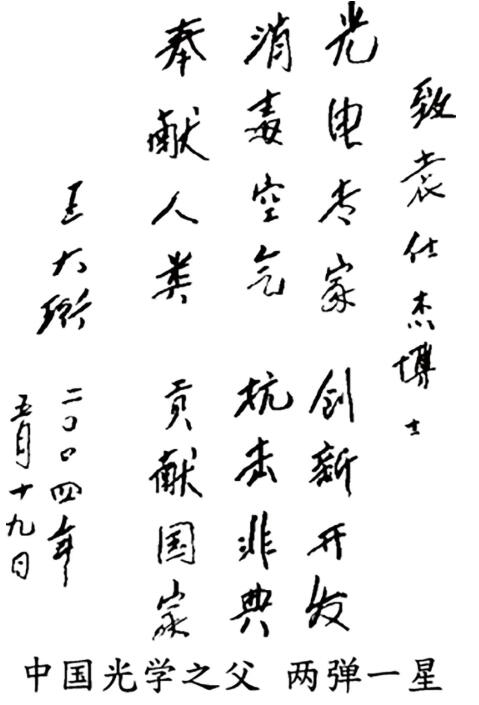 致袁仕杰博士
光电专家 创新开发
消毒空气 抗击非典
奉献人类 贡献国家
王大珩 二〇〇四年
五月十九日
中国光学之父 两弹一星